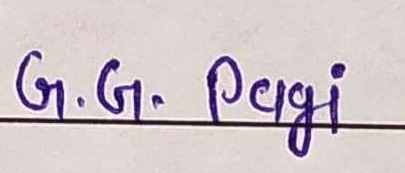 G.G. Pagi